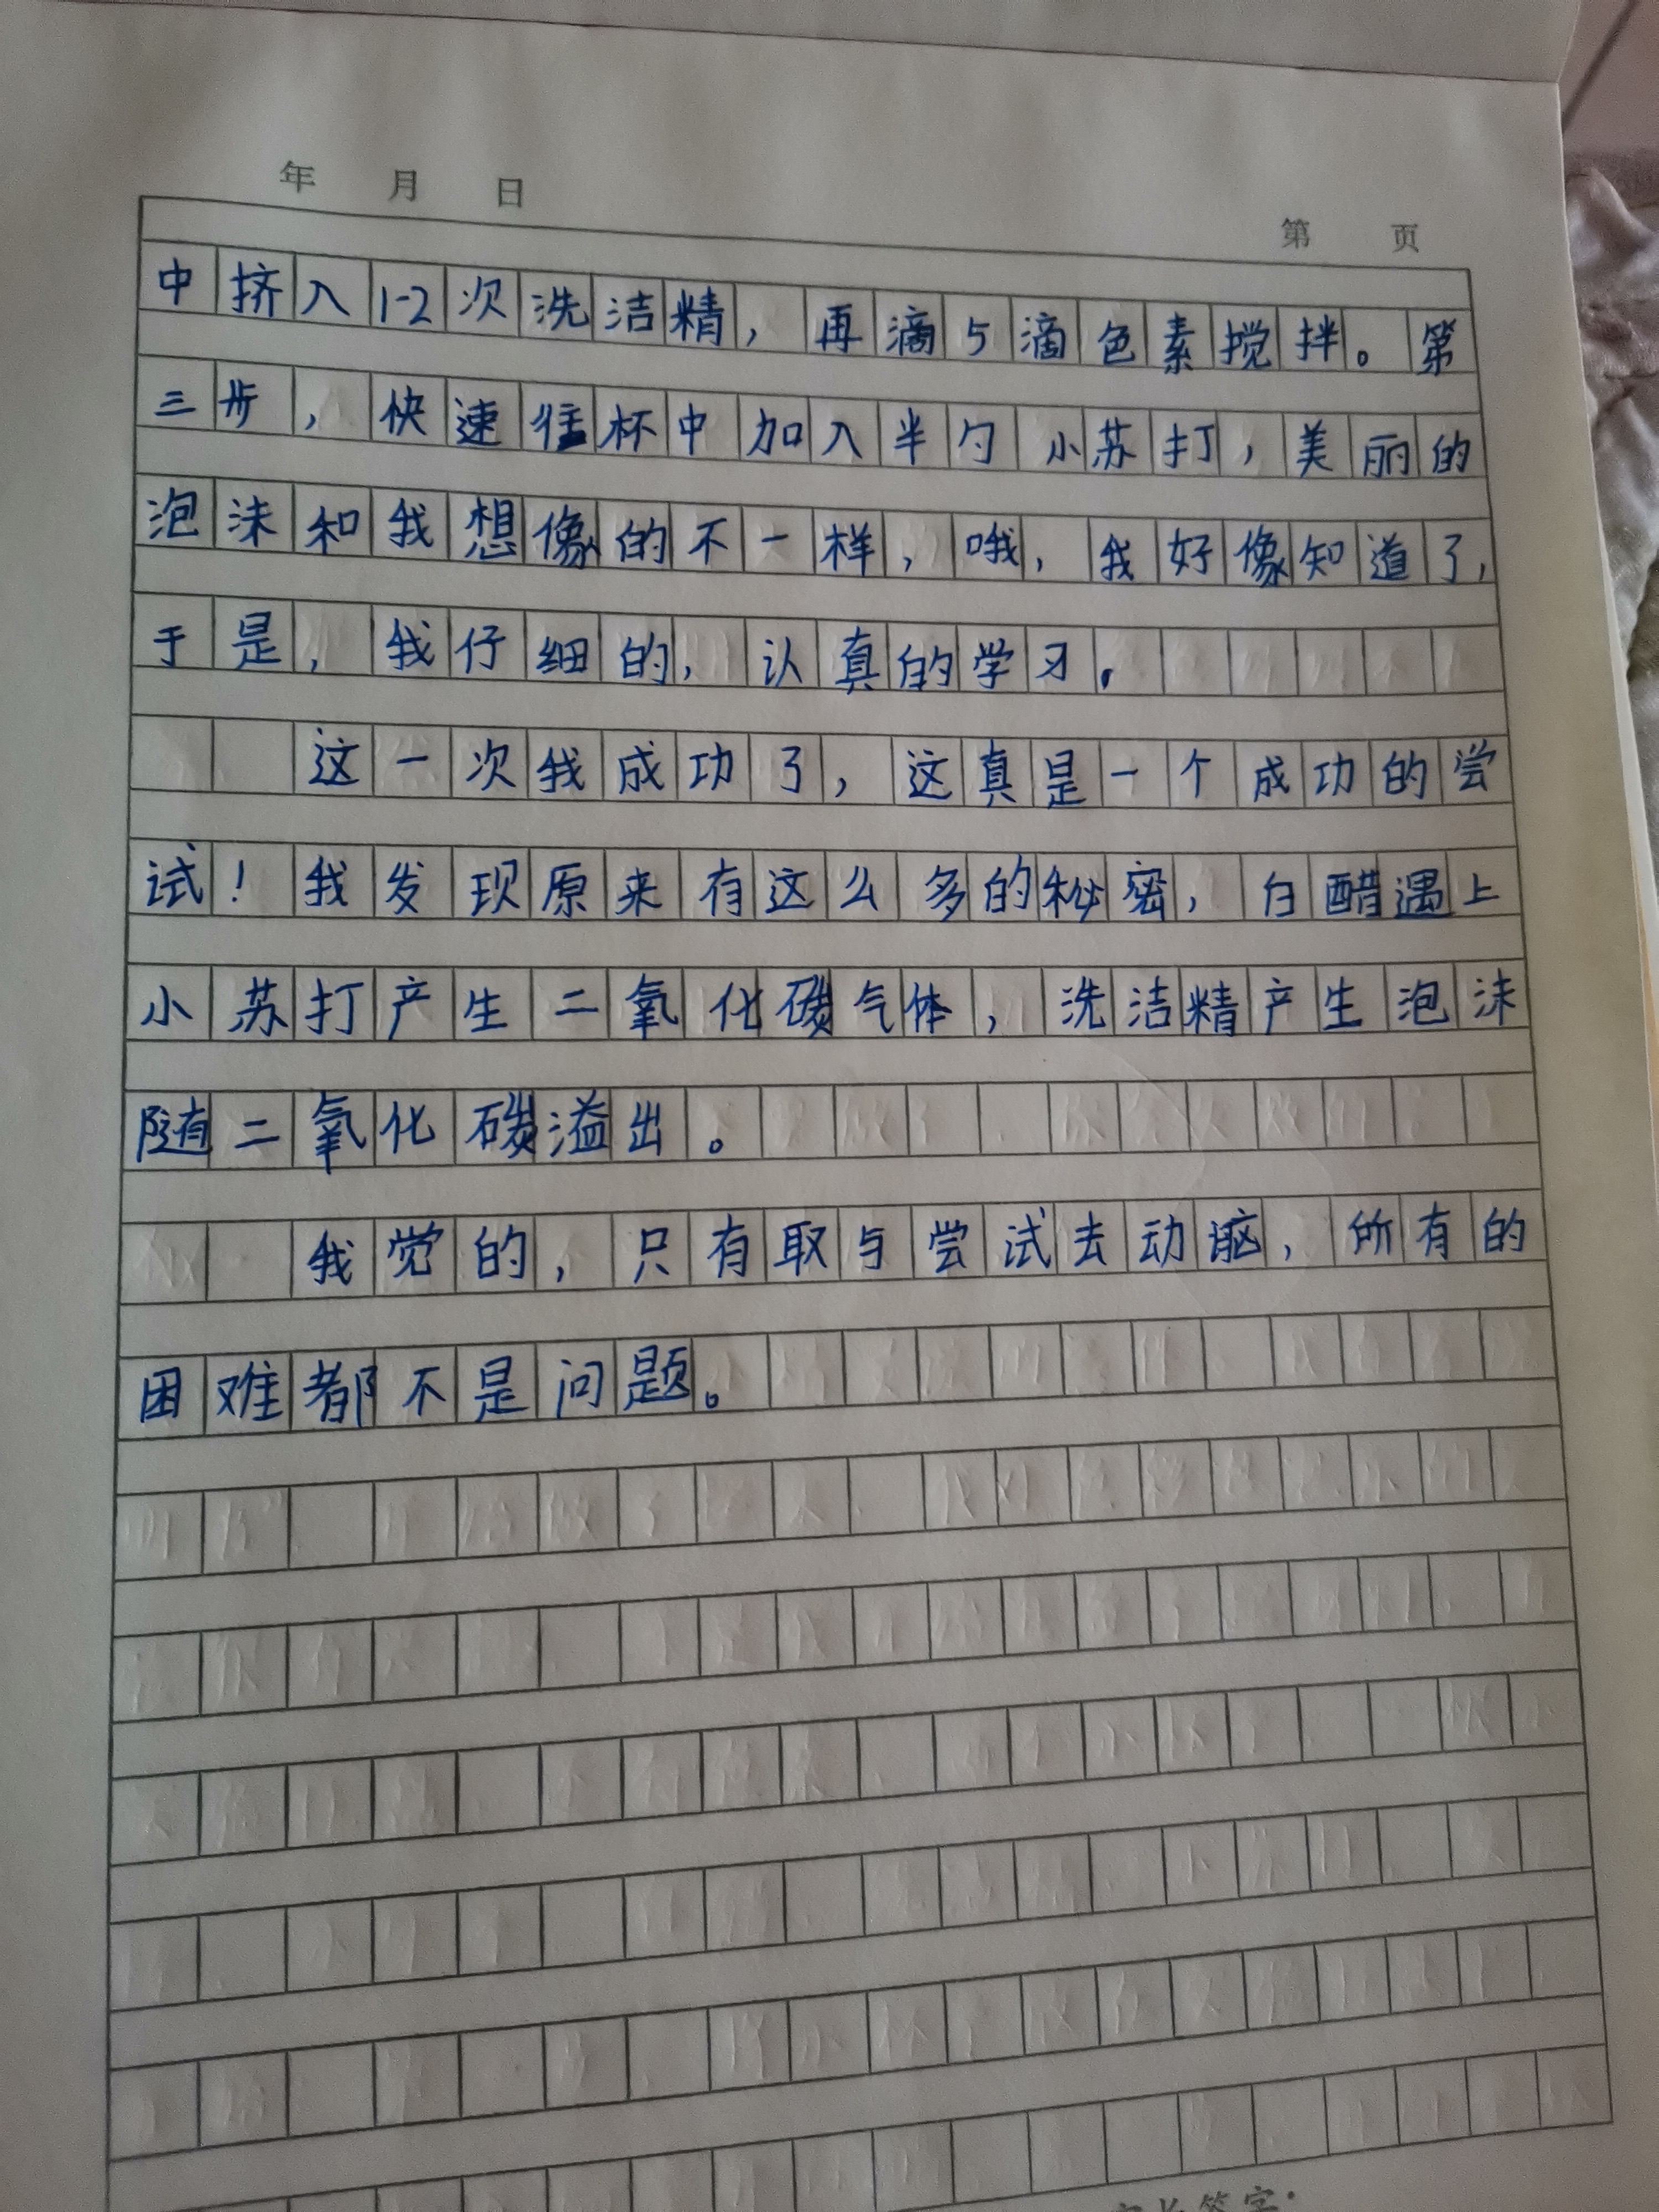 年 月 日
第 页
中挤入1-2次洗洁精，再滴5滴色素搅拌。第
三步，快速往杯中加入半勺小苏打，美丽的
泡沫和我想像的不一样，哦，我好像知道了，
于是，我仔细的，认真的学习。
这一次我成功了，这真是一个成功的尝
试！我发现原来有这么多的秘密，白醋遇上
小苏打产生二氧化碳气体，洗洁精产生泡沫
随二氧化碳溢出。
我觉的，只有取与尝试去动脑，所有的
困难都不是问题。